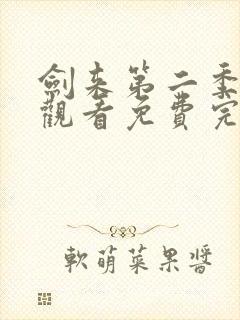 劍来第二季
觀看免費完
軟萌菜果醬